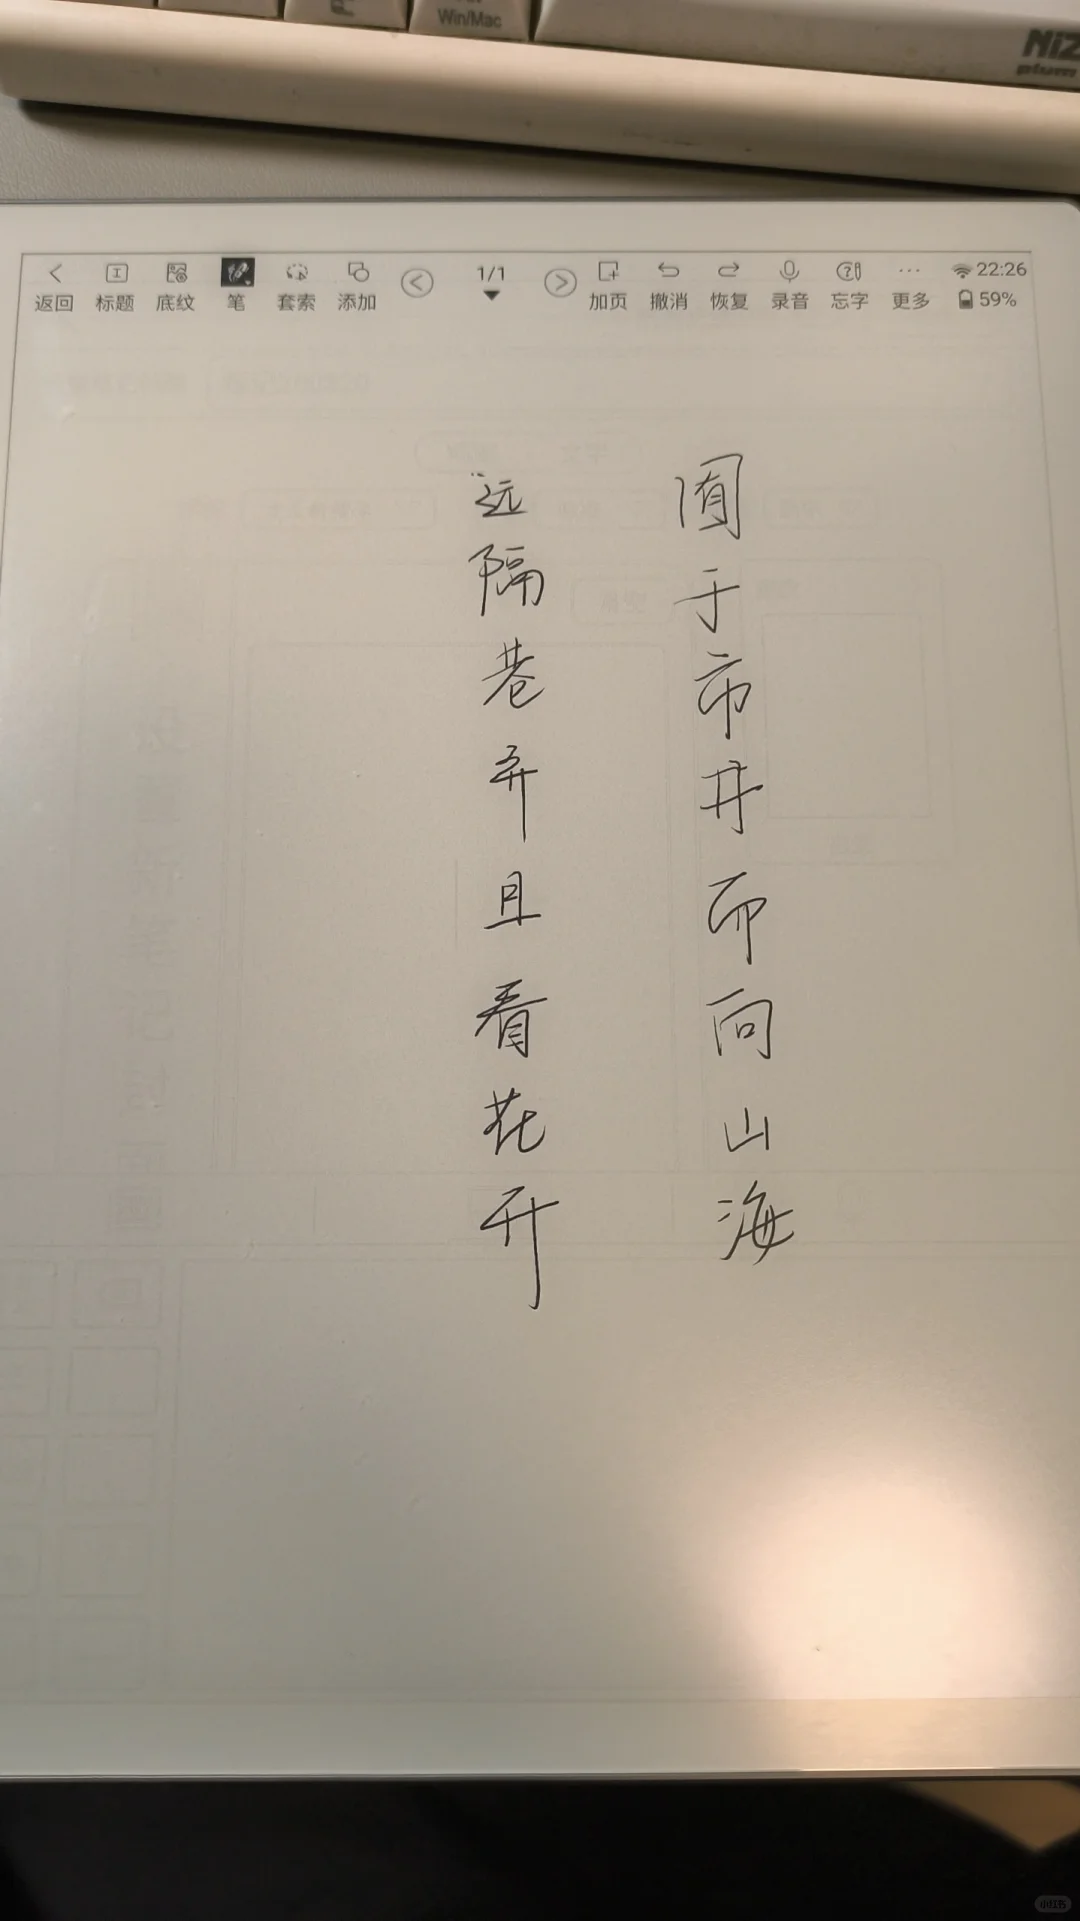 Win/Mac
NiZ
plum
返回 标题 底纹 笔 套索 添加 1/1 加页 撤消 恢复 录音 忘字 更多 22:26 59%
囿于市井而向山海
远隔巷弄且看花开
小红书